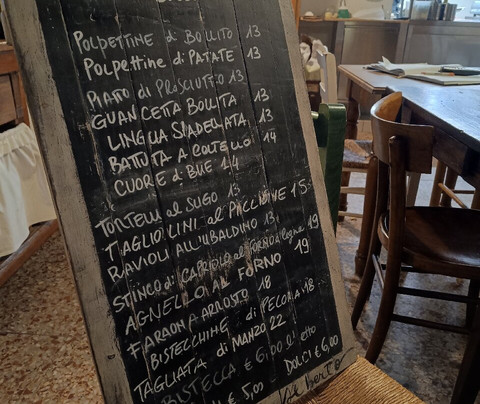 POLPETTINE di BOLLITO 13
POLPETTINE di PATATE 13
PIATTO di PROSCIUTTO 13
GUANCETTA BOLLITA 13
LINGUA SPADELLATA 13
BATTUTA A COLTELLO 14
CUORE di BUE 14
TORTELLI al SUGO 13
TAGLIOLINI al PICCIONE 15
RAVIOLI ALL'UBALDINO 13
STINCO di CAPRIOLO al FORNO a legna 19
AGNELLO AL FORNO 19
FARAONA ARROSTO 18
BISTECCHINE di PECORA 18
TAGLIATA di MANZO 22
BISTECCA € 6,00 l'etto
€ 5,00 DOLCI € 6,00